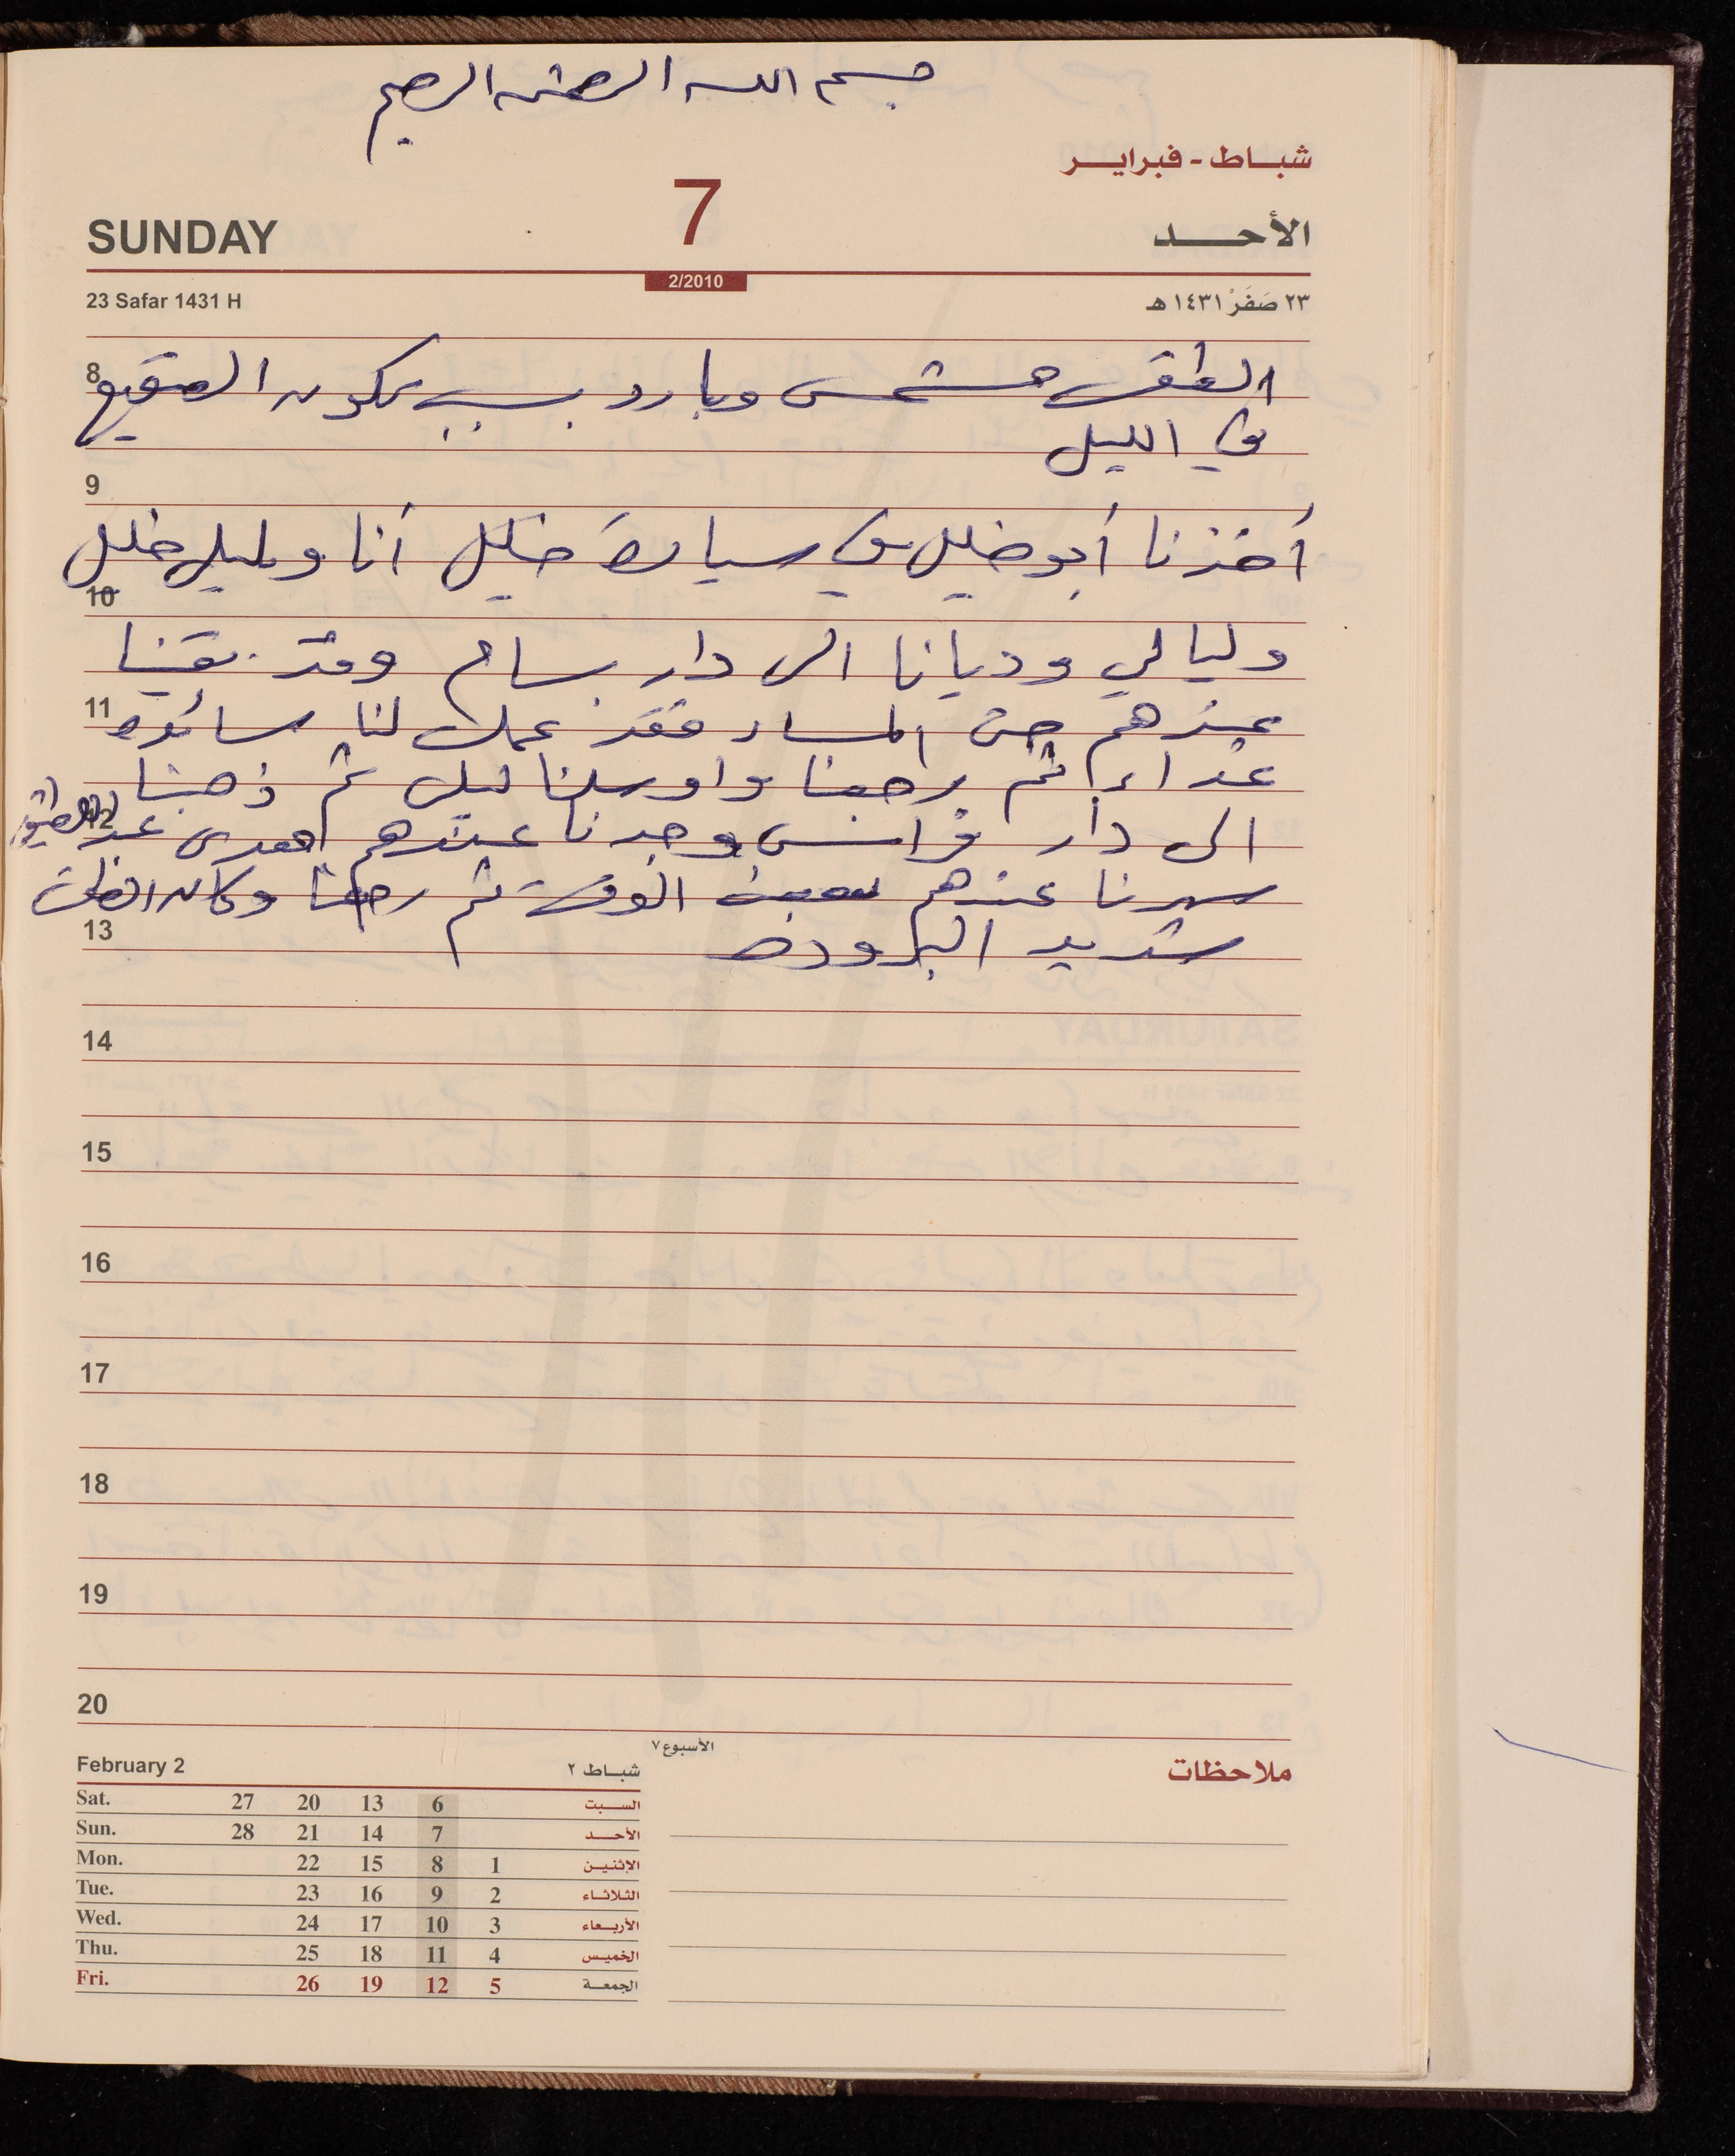 بسم الله الرحمن الرحيم
شباط - فبراير
SUNDAY 7 الأحد
2/2010
23 Safar 1431 H ٢٣ صَفَرْ ١٤٣١ هـ
8 الطقس مشمس وبارد بسبب تكون الصقيع
في الليل
9
أخذنا أبو خليل في سيارة خليل أنا وليلى خليل
10
وليالي وديانا الى دار بسام وقد بقينا
11 عندهم حتى المساء فقد عملت لنا سائدة
غداء ثم رجعنا واوصلنا ليلى ثم ذهبنا
12 الى دار فراس وجدنا عندهم هدى عبد
سهرنا عندهم بعض الوقت ثم رجعنا وكان الطقس
13 شديد البرودة
14
15
16
17
18
19
20
الأسبوع ٧
ملاحظات
February 2 شباط ٢
Sat. 27 20 13 6 السبت
Sun. 28 21 14 7 الأحد
Mon. 22 15 8 1 الإثنين
Tue. 23 16 9 2 الثلاثاء
Wed. 24 17 10 3 الأربعاء
Thu. 25 18 11 4 الخميس
Fri. 26 19 12 5 الجمعة